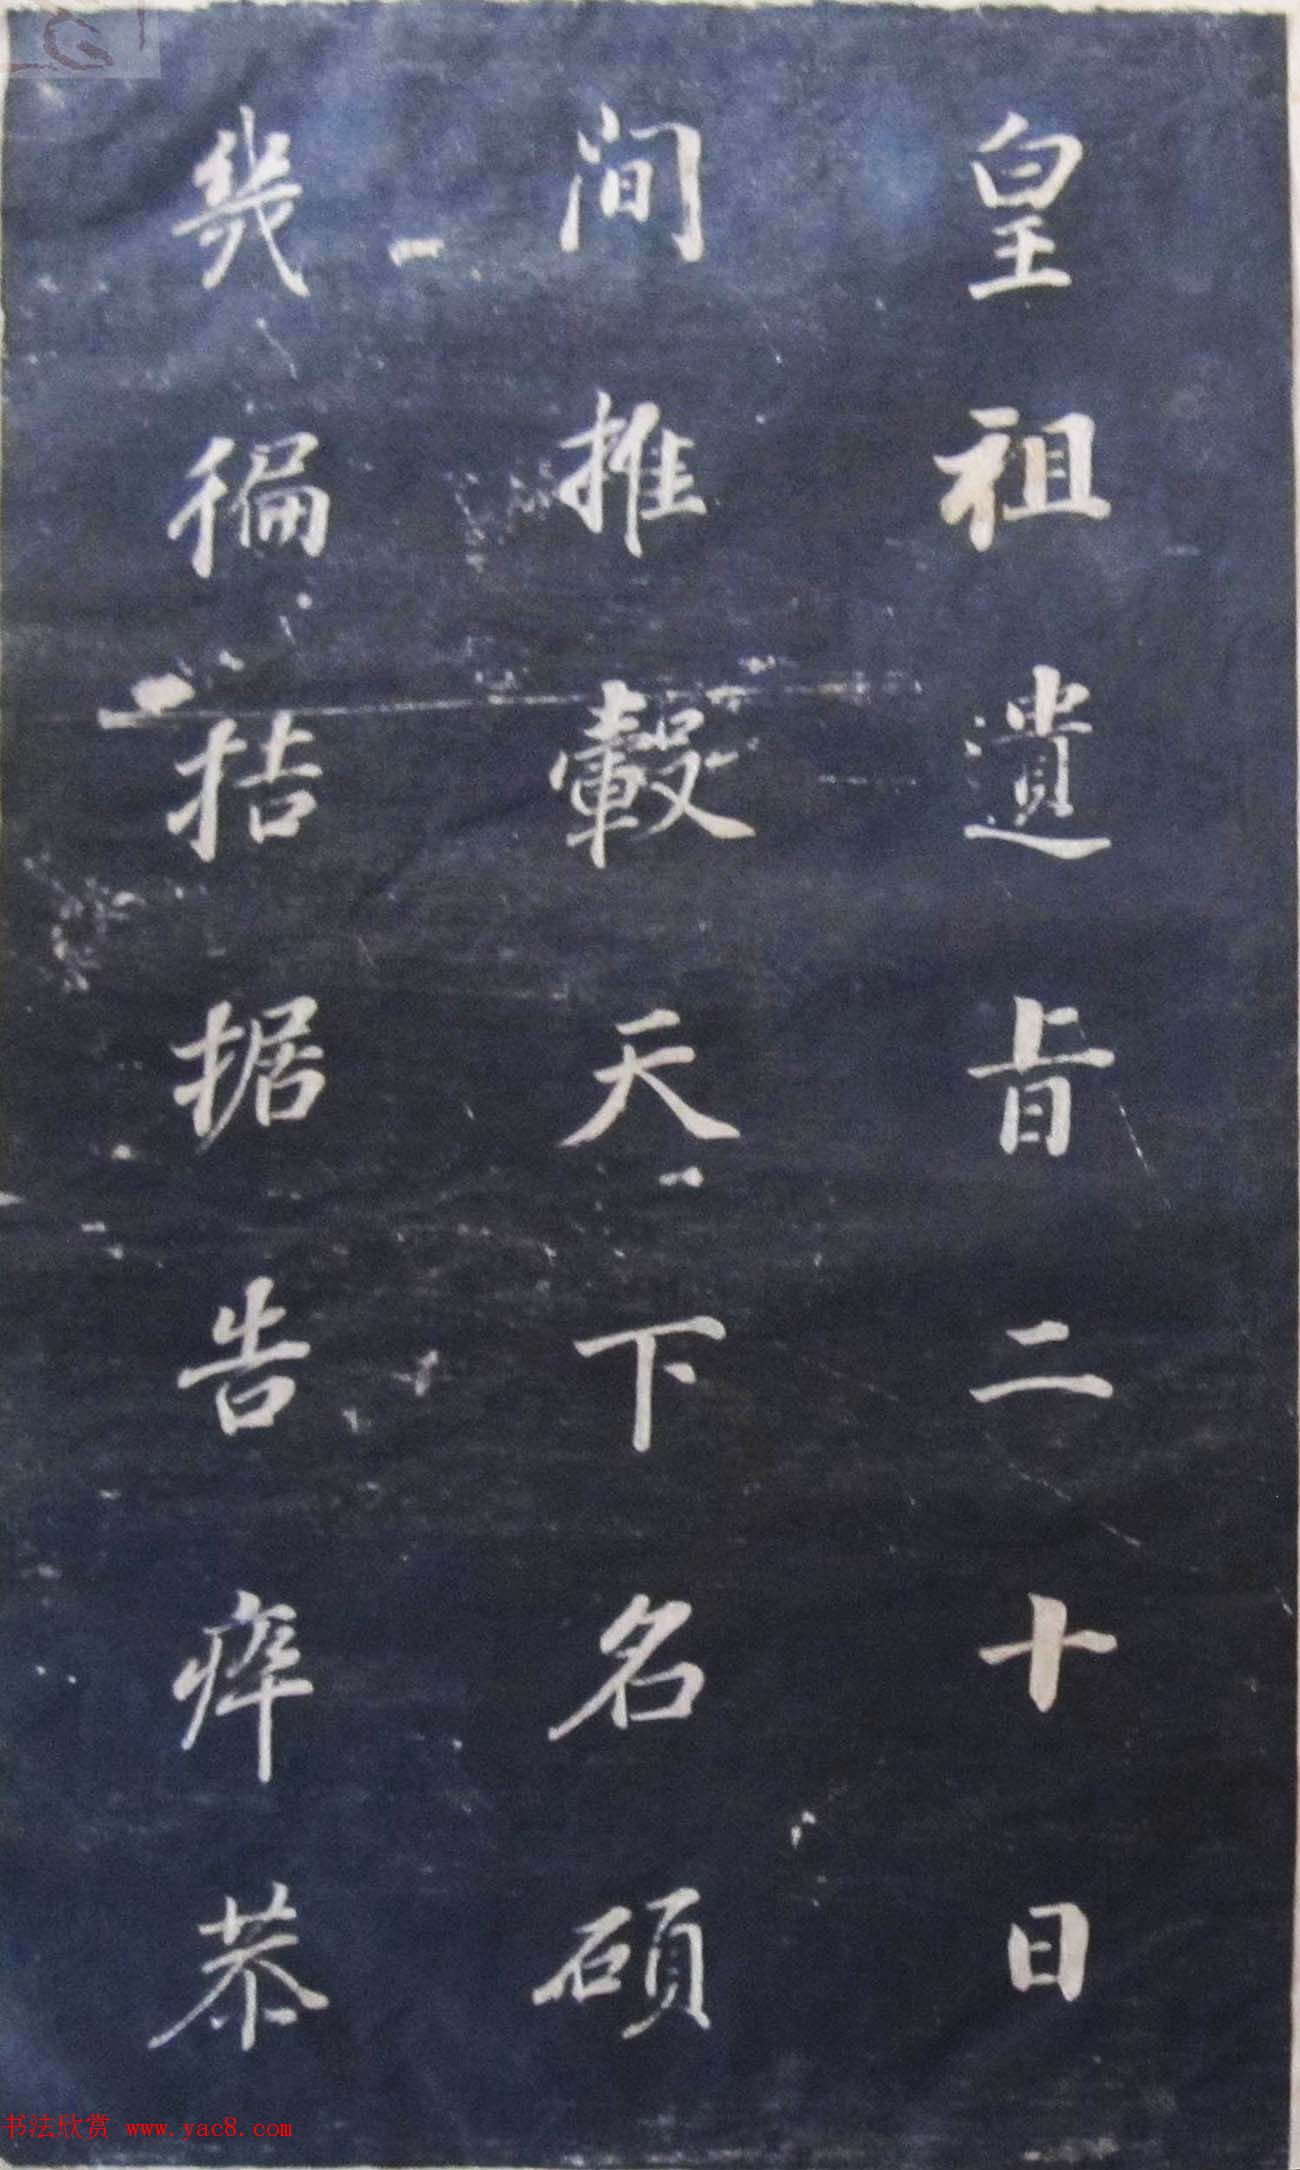 皇祖遺旨二十日
間推轂天下名碩
幾徧拮据告瘁恭
书法欣赏 www.yac8.com